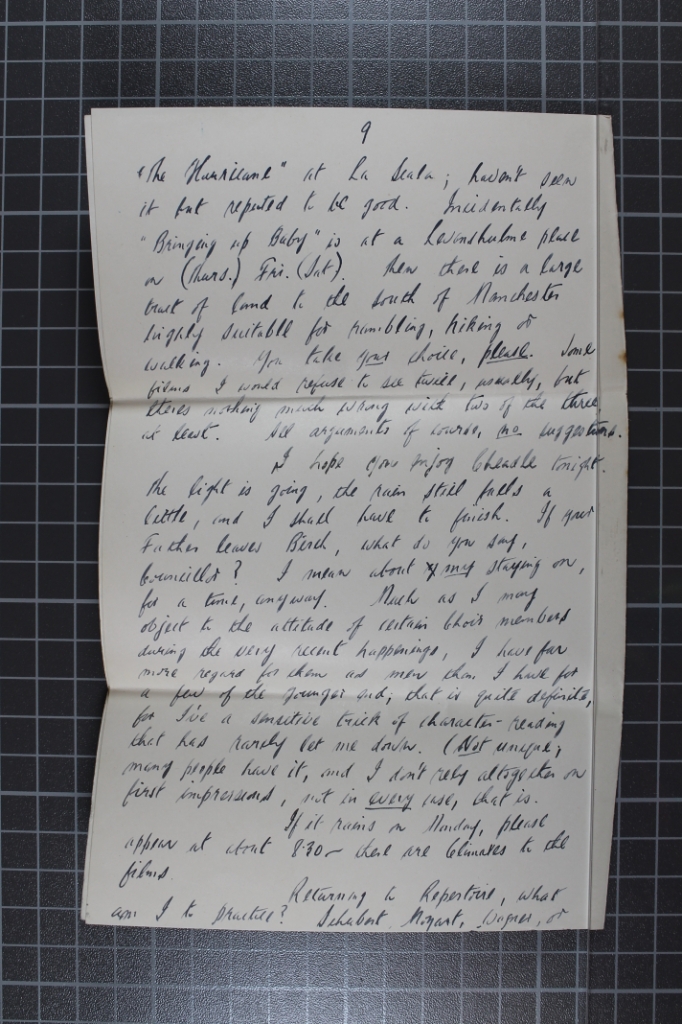 9
"The Hurricane" at La Scala; haven't seen
it but reputed to be good. Incidentally
"Bringing up Baby" is at a Levenshulme place
on (Thurs.) Fri. (Sat). Then there is a large
tract of land to the south of Manchester
highly suitable for rambling, hiking or
walking. You take your choice, please. Some
films I would refuse to see twice, usually, but
theres nothing much wrong with two of the three,
at least. All arguments of course, no suggestions.
I hope you enjoy Cheadle tonight.
The light is going, the rain still falls a
little, and I shall have to finish. If your
Father leaves Birch, what do you say,
Councillor? I mean about my staying on,
for a time, anyway. Much as I may
object to the attitude of certain Choir members
during the very recent happenings, I have far
more regard for them as men than I have for
a few of the younger end; that is quite definite,
for I've a sensitive trick of character-reading
that has rarely let me down. (Not unique;
many people have it, and I don't rely altogether on
first impressions, not in every case, that is.
If it rains on Monday, please
appear at about 8.30 – there are climaxes to the
films.
Returning to Repertoire, what
am I to practice? Schubert, Mozart, Wagner, or